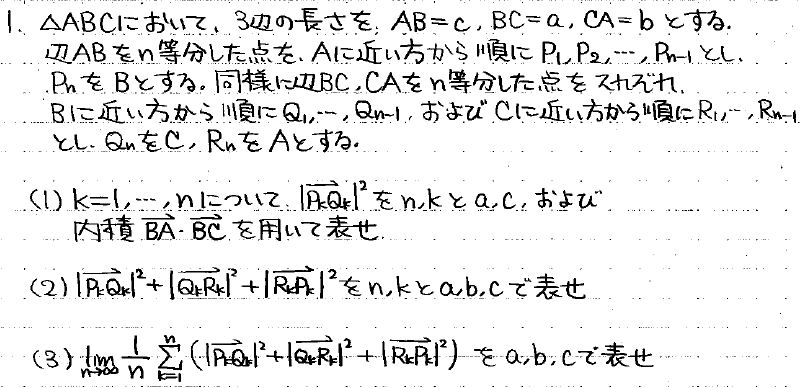 1. △ABCにおいて、3辺の長さを AB=c, BC=a, CA=b とする.
辺ABをn等分した点を、Aに近い方から順に P₁, P₂, …, Pₙ₋₁ とし、
PₙをBとする. 同様に辺BC, CAをn等分した点をそれぞれ、
Bに近い方から順に Q₁, …, Qₙ₋₁, および Cに近い方から順に R₁, …, Rₙ₋₁
とし、QₙをC, RₙをAとする.
(1) k=1, …, n について |→PₖQₖ|² を n, k と a, c, および
内積 →BA・→BC を用いて表せ
(2) |→PₖQₖ|² + |→QₖRₖ|² + |→RₖPₖ|² を n, k と a, b, c で表せ
(3) lim n→∞ 1/n Σ i=1 n (|→PₖQₖ|² + |→QₖRₖ|² + |→RₖPₖ|²) を a, b, c で表せ